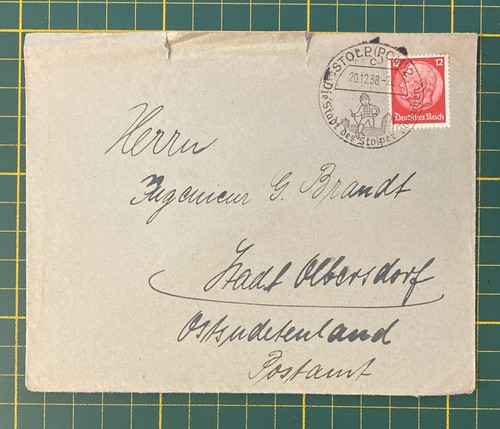 STOLP (POM
c
20.12.38.-2
Die Stadt des Stolper
12 12
Deutsches Reich
Herrn
Ingenieur G. Brandt
Stadt Olbersdorf
Ostsudetenland
Postamt